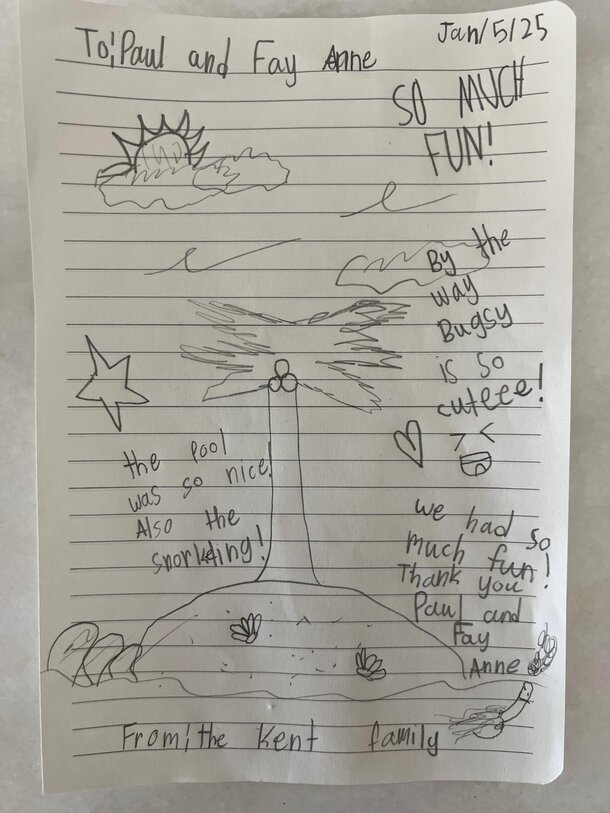 To: Paul and Fay Anne
Jan/5/25
SO MUCH
FUN!
By the
way
Bugsy
is so
cuteee!
the pool
was so nice!
Also the
snorkling!
we had so
much fun!
Thank you
Paul and
Fay
Anne
From: the Kent family